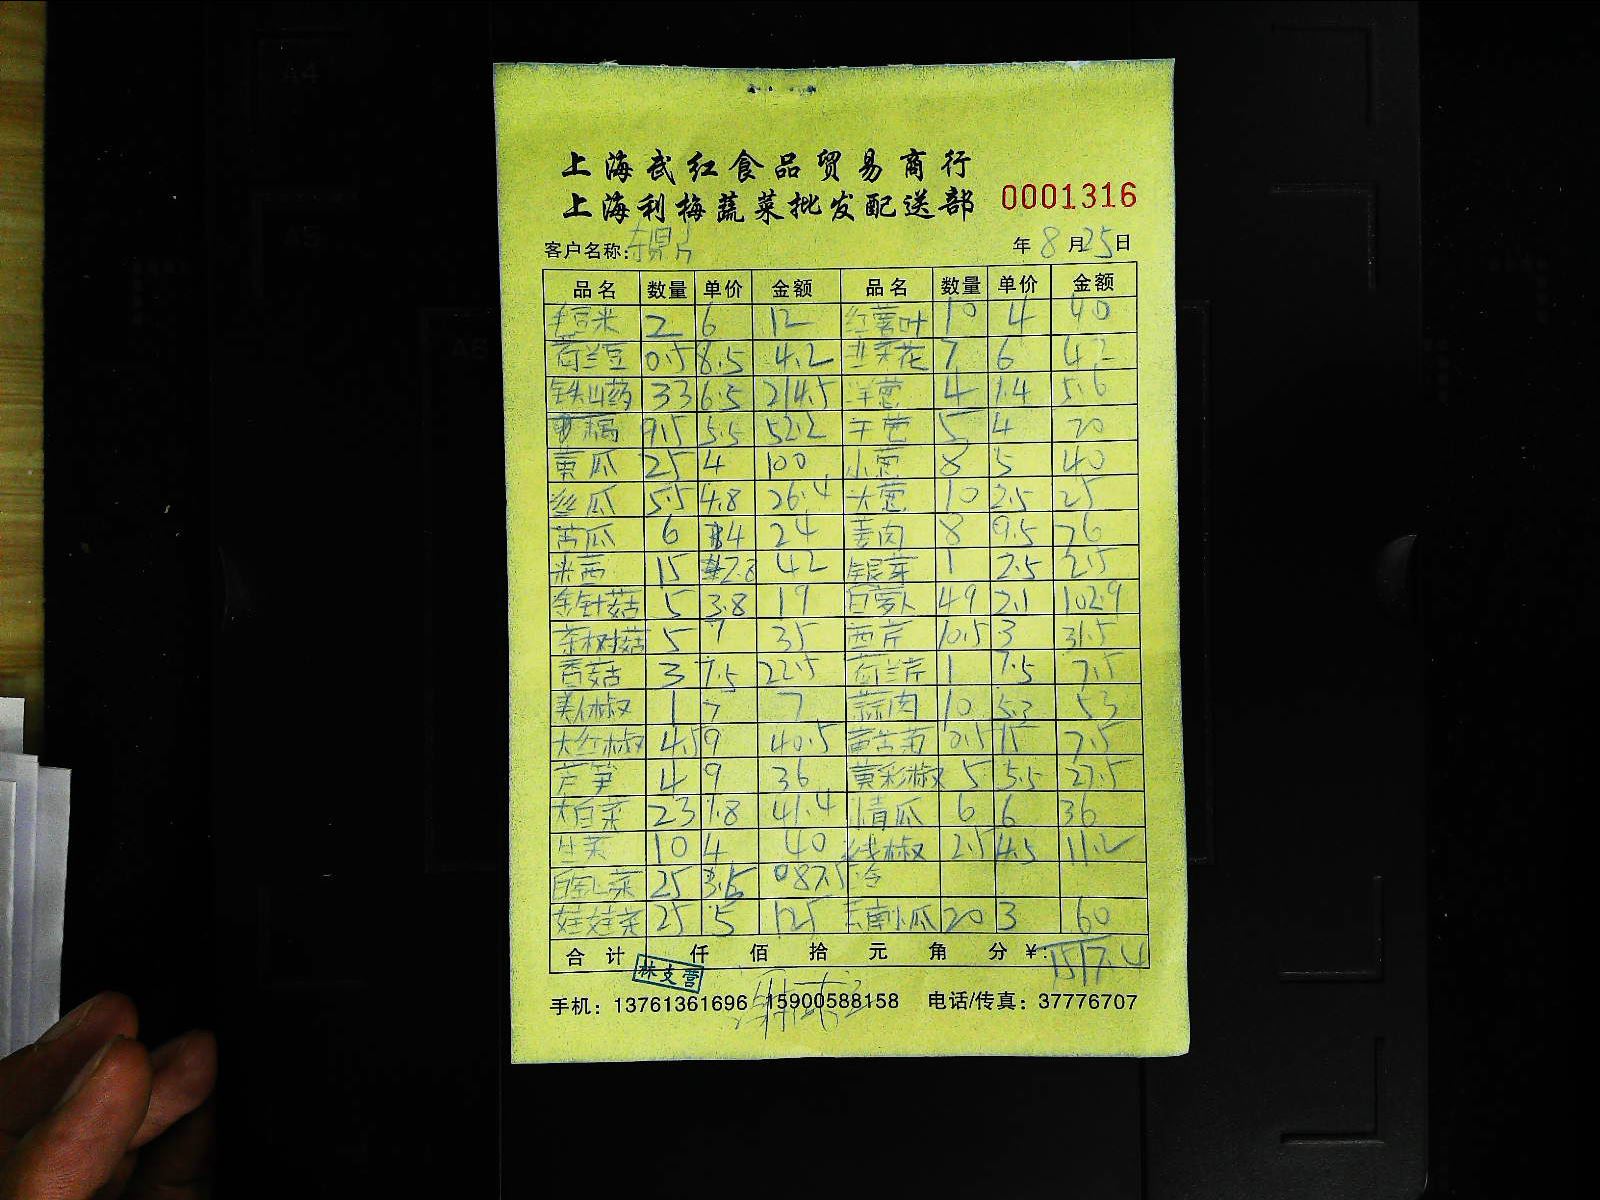 上海武红食品贸易商行
上海利梅蔬菜批发配送部 0001316
客户名称: 年 8 月 25 日
品名 数量 单价 金额 品名 数量 单价 金额
毛豆米 2 6 12 红薯叶 10 4 40
荷兰豆 0.5 8.5 4.2 韭菜花 7 6 42
铁山药 33 6.5 214.5 洋葱 4 1.4 5.6
藕 9.5 5.5 52.2 干葱 5 4 20
黄瓜 25 4 100 小葱 8 5 40
丝瓜 5.5 4.8 26.4 大葱 10 2.5 25
苦瓜 6 4 24 姜肉 8 9.5 76
米西 15 2.8 42 银芽 1 2.5 2.5
金针菇 5 3.8 19 白萝卜 49 2.1 102.9
茶树菇 5 7 35 西芹 10.5 3 31.5
香菇 3 7.5 22.5 荷兰芹 1 7.5 7.5
美人椒 1 7 7 蒜肉 10 5.3 53
大红椒 4.5 9 40.5 黄苦菊 0.5 15 7.5
芦笋 4 9 36 黄彩椒 5 5.5 27.5
大白菜 23 1.8 41.4 青瓜 6 6 36
生菜 10 4 40 线椒 2.5 4.5 11.2
菜 25 3.5 87.5
娃娃菜 25 5 125 云南小瓜 20 3 60
合计 仟 佰 拾 元 角 分 ¥: 1517.4
林支营
手机: 13761361696 15900588158 电话/传真: 37776707